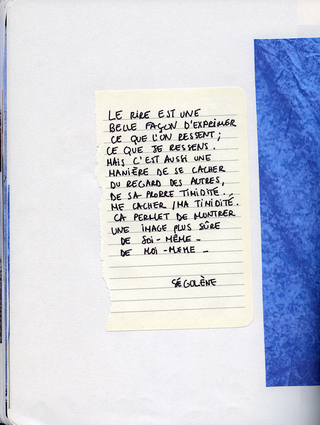 LE RIRE EST UNE
BELLE FAÇON D'EXPRIMER
CE QUE L'ON RESSENT ;
CE QUE JE RESSENS.
MAIS C'EST AUSSI UNE
MANIÈRE DE SE CACHER
DU REGARD DES AUTRES,
DE SA PROPRE TIMIDITÉ.
ME CACHER / MA TIMIDITÉ.
CA PERMET DE MONTRER
UNE IMAGE PLUS SÛRE
DE SOI-MÊME -
DE MOI-MEME -
SÉGOLÈNE